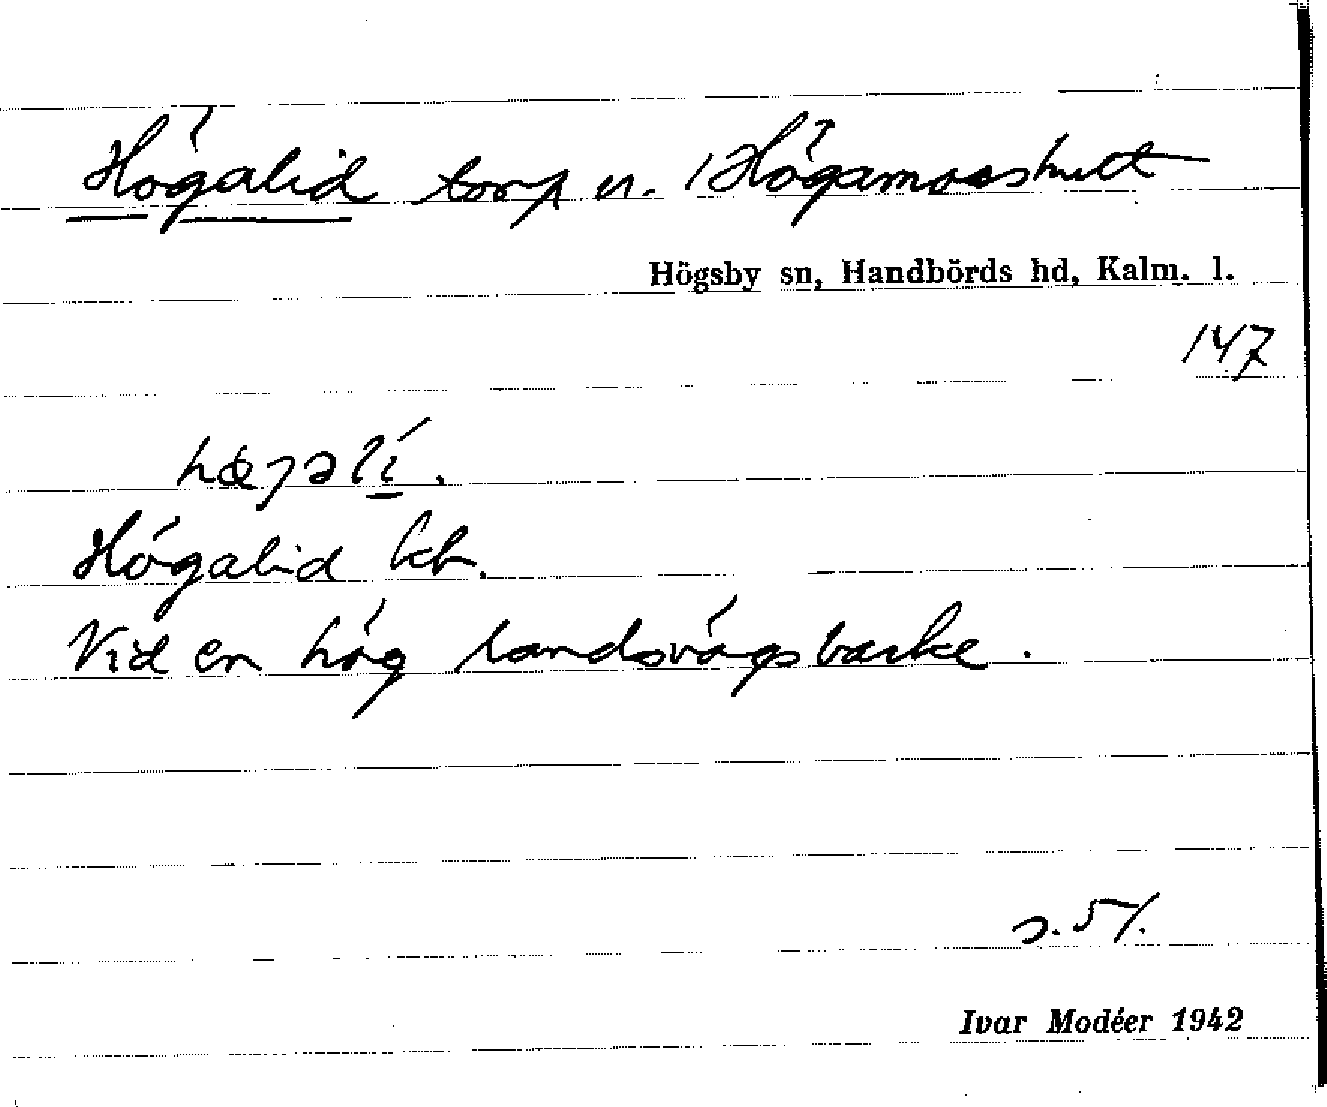 Högalid torp u. Högamosshult
Högsby sn, Handbörds hd, Kalm. l.
147
Högalid kb.
Vid en hög landsvägsbacke.
s. 51.
Ivar Modéer 1942